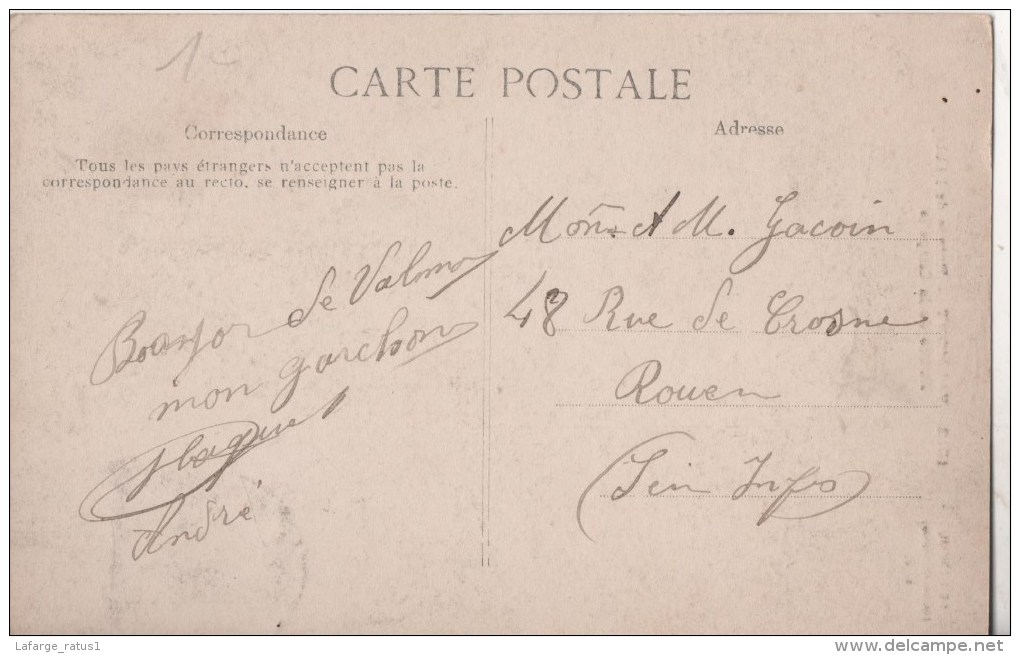 1
CARTE POSTALE
Correspondance
Tous les pays étrangers n'acceptent pas la
correspondance au recto, se renseigner à la poste.
Bonjor de Valmo
mon garchon
André
Adresse
M. Gacoin
48 Rue de Crosne
Rouen
(Sein Info)
Lafarge_ratus1
www.delcampe.net